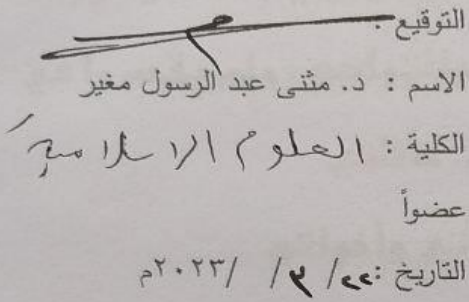 التوقيع :
الاسم : د. مثنى عبد الرسول مغير
الكلية : العلوم الاسلامية
عضواً
التاريخ : ٢٢/ ٣ / /٢٠٢٣م